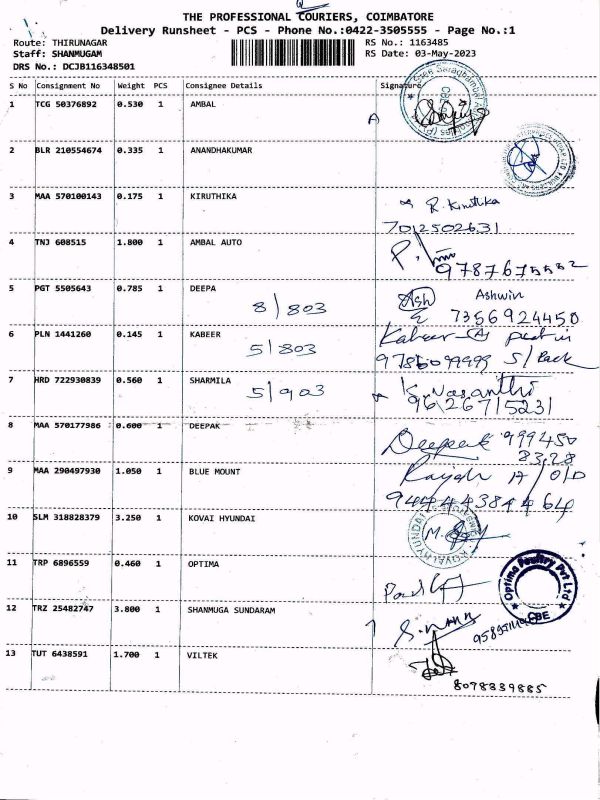 THE PROFESSIONAL COURIERS, COIMBATORE
Delivery Runsheet - PCS - Phone No.:0422-3505555 - Page No.:1
Route: THIRUNAGAR RS No.: 1163485
Staff: SHANMUGAM RS Date: 03-May-2023
DRS No.: DCJB116348501
S No Consignment No Weight PCS Consignee Details Signature
1 TCG 50376892 0.530 1 AMBAL A
2 BLR 210554674 0.335 1 ANANDHAKUMAR
3 MAA 570100143 0.175 1 KIRUTHIKA R. Kiruthika
7012502631
4 TNJ 608515 1.800 1 AMBAL AUTO
5 PGT 5505643 0.785 1 DEEPA 8/803 Ash Ashwin
7356924450
6 PLN 1441260 0.145 1 KABEER 5/803 Kabeer
7 HRD 722930839 0.560 1 SHARMILA 5/903 K. Vasanthi
9626715231
8 MAA 570177986 0.600 1 DEEPAK Deepak 999450
8328
9 MAA 290497930 1.050 1 BLUE MOUNT
10 SLM 318828379 3.250 1 KOVAI HYUNDAI
11 TRP 6896559 0.460 1 OPTIMA Optima Poultry Pvt Ltd
CBE
12 TRZ 25482747 3.800 1 SHANMUGA SUNDARAM
13 TUT 6438591 1.700 1 VILTEK
8078339885